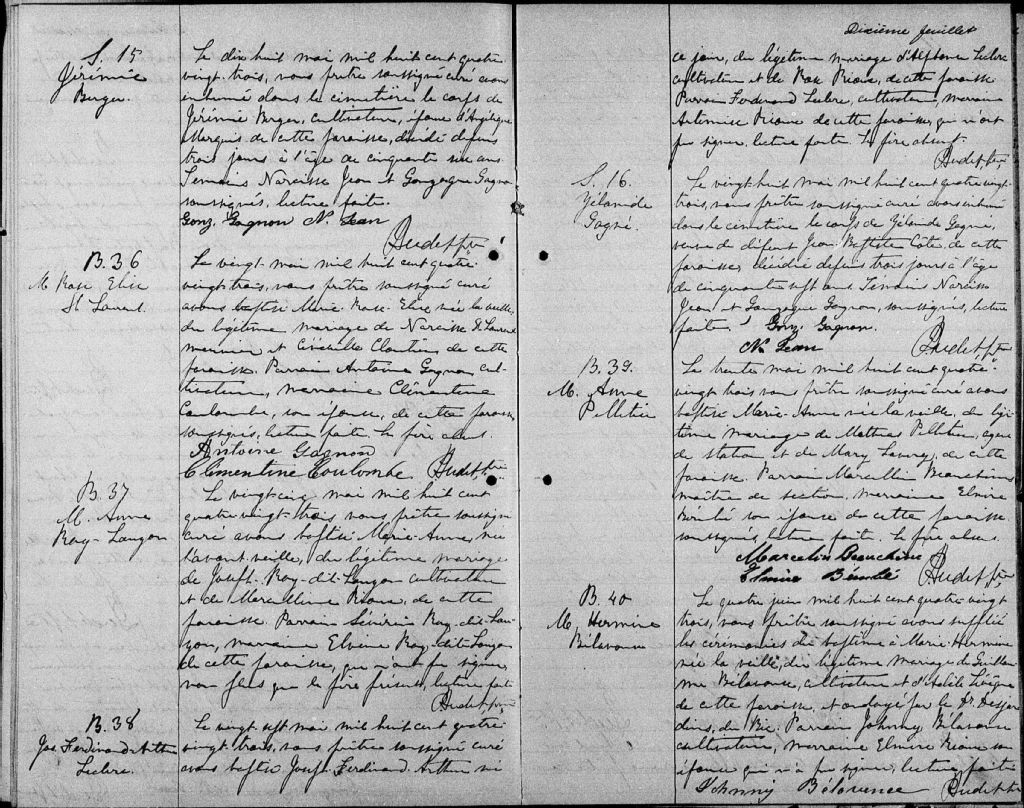 S. 15
Jérémie
Berger.
Le dix huit mai mil huit cent quatre
vingt trois, nous prêtre soussigné curé avons
inhumé dans le cimetière le corps de
Jérémie Berger, cultivateur, époux d'Angèque
Marquis de cette paroisse, décédé depuis
trois jours à l'âge de cinquante six ans
Témoins Narcisse Jean et Gonzague Gagnon
soussignés, lecture faite.
Gonz. Gagnon N. Jean
Audet ptre
B. 36
M Rose Elise
St Laurent
Le vingt mai mil huit cent quatre
vingt trois, nous prêtre soussigné curé
avons baptisé Marie Rose Elise née la veille
du légitime mariage de Narcisse St Laurent
menuisier et Cloutier de cette
paroisse. Parrain Antoine Gagnon cul-
tivateur, marraine Clémentine
Coulombe, son épouse, de cette paroisse
soussignés, lecture faite. Le père absent.
Antoine Gagnon
Clémentine Coulombe Audet, ptre
B. 37
M. Anne
Roy-Lauzon
Le vingt cinq mai mil huit cent
quatre vingt-trois nous prêtre soussigné
curé avons baptisé Marie-Anne, née
l'avant veille, du légitime mariage
de Joseph Roy-dit-Lauzon cultivateur
et de Marcelline Rioux, de cette
paroisse. Parrain Sévérin Roy-dit-Lau-
zon, marraine Elvine Roy-dit-Lauzon
de cette paroisse, qui n'ont pu signer
non plus que le père présent, lecture faite
Audet ptre
B. 38
Jos. Ferdinand Arthur
Leclerc.
Le vingt sept mai mil huit cent quatre
vingt trois, nous prêtre soussigné curé
avons baptisé Joseph Ferdinand Arthur né
Dixième feuillet
ce jour, du légitime mariage d'Alphonse Leclerc
cultivateur et de Rose Rioux, de cette paroisse
Parrain Ferdinand Leclerc, cultivateur, marraine
Artémise Rioux de cette paroisse, qui n'ont
pu signer, lecture faite. Le père absent.
Audet, ptre
S. 16.
Zélande
Gagné.
Le vingt huit mai mil huit cent quatre vingt-
trois, nous prêtre soussigné curé avons inhumé
dans le cimetière le corps de Zélande Gagné,
veuve de défunt Jean-Baptiste Côté, de cette
paroisse, décédée depuis trois jours à l'âge
de cinquante sept ans Témoins Narcisse
Jean et Gonzague Gagnon, soussignés, lecture
faite. Gonz. Gagnon.
N. Jean Audet ptre
B. 39.
M. Anne
Pelletier
Le trente mai mil huit cent quatre
vingt trois nous prêtre soussigné curé avons
baptisé Marie-Anne née la veille, du légi-
time mariage de Mathias Pelletier, agent
de station et de Mary de cette
paroisse. Parrain Marcellin Beauchêne
maître de section, marraine Elmire
Bérubé son épouse de cette paroisse
soussignés lecture faite. Le père absent.
Marcelin Beauchêne
Elmire Bérubé Audet ptre
B. 40
M. Hermine
Bélavance
Le quatre juin mil huit cent quatre-vingt
trois, nous prêtre soussigné avons suppléé
les cérémonies du baptême à Marie Hermine
née la veille, du légitime mariage de Guillau-
me Bélavance, cultivateur et d'Adèle Lévêque
de cette paroisse, et ondoyée par le Dr. Desjar-
dins, du Bic. Parrain Johnny Bélavance
cultivateur, marraine Elmire Rioux son
épouse qui n'a pu signer, lecture faite
Johnny Bélavence Audet ptre